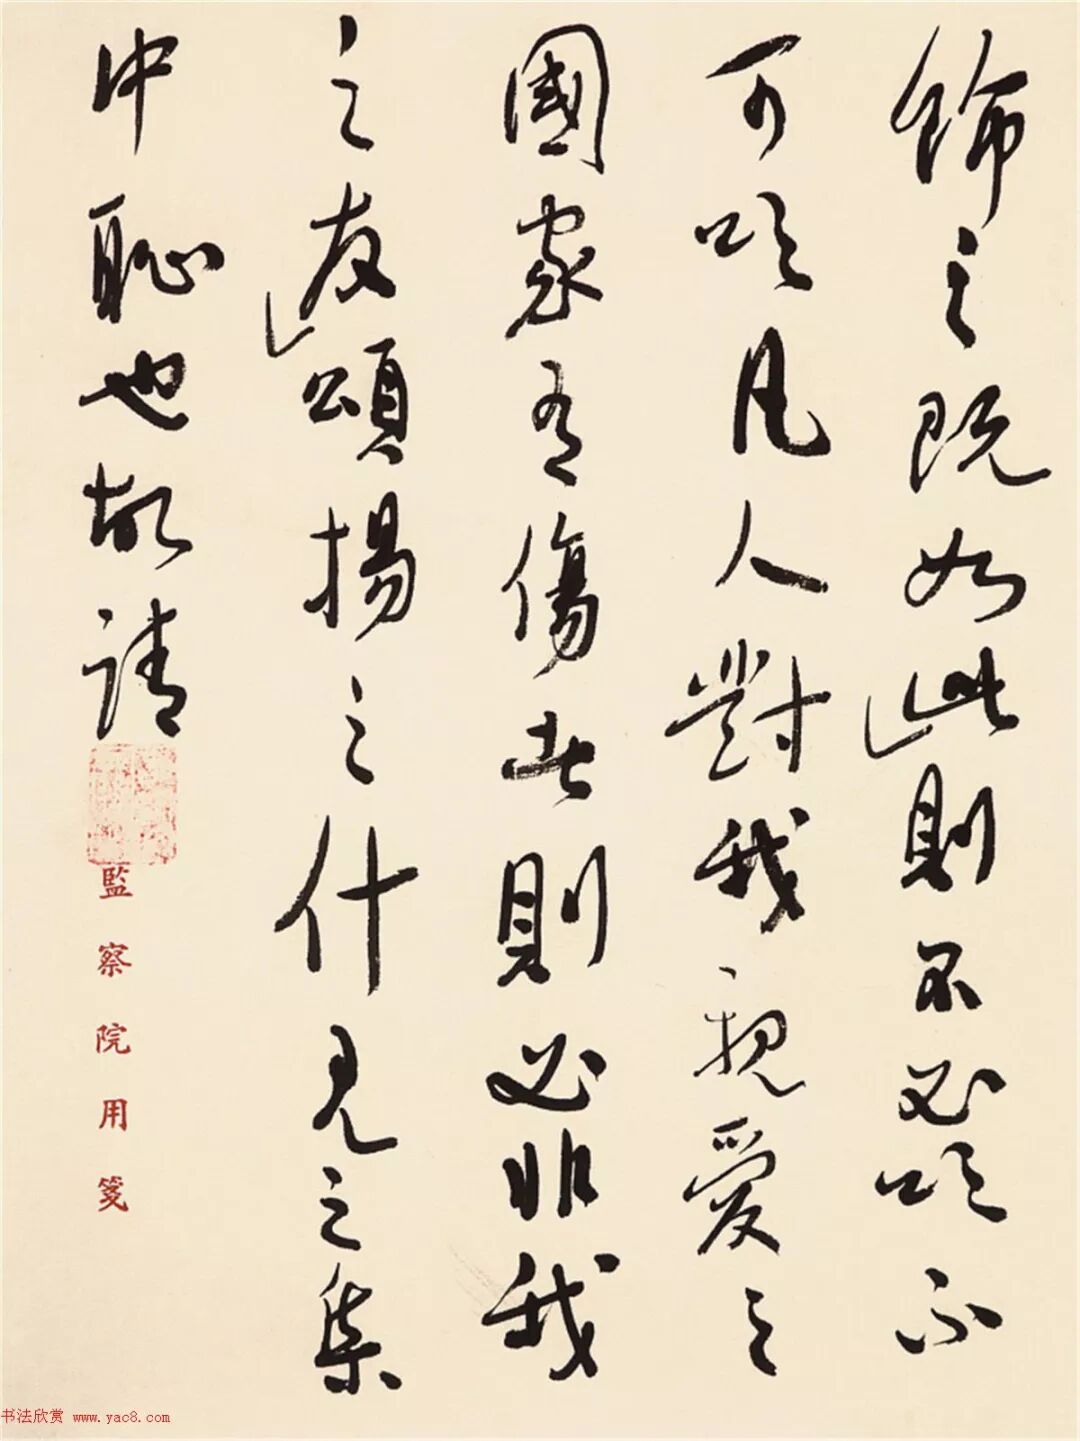 飾之既如此則不必吹不
可吹凡人對我親愛之
國家有傷者則必非我
之友頌揚之什見之集
中恥也故請
監察院用箋
书法欣赏 www.yac8.com